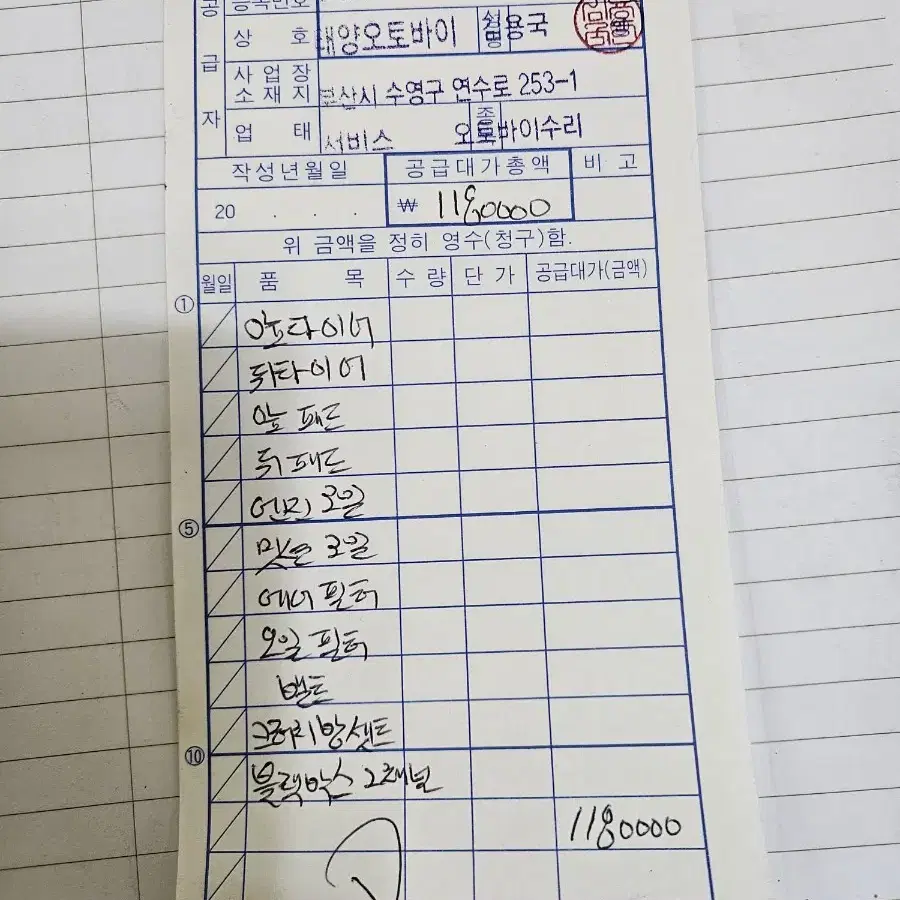 공급자
등록번호
상 호 태양오토바이 성명 용국
사업장소재지 부산시 수영구 연수로 253-1
업 태 서비스 종목 오토바이수리
작성년월일 공급대가총액 비고
20 . . . ₩ 1180000
위 금액을 정히 영수(청구)함.
월일 품 목 수량 단가 공급대가(금액)
① 앞타이어
뒤타이어
앞 패드
뒤 패드
엔진 오일
⑤ 밋숀 오일
에어 필터
오일 필터
벨트
크러치방셋트
⑩ 블랙박스 2채널
1180000